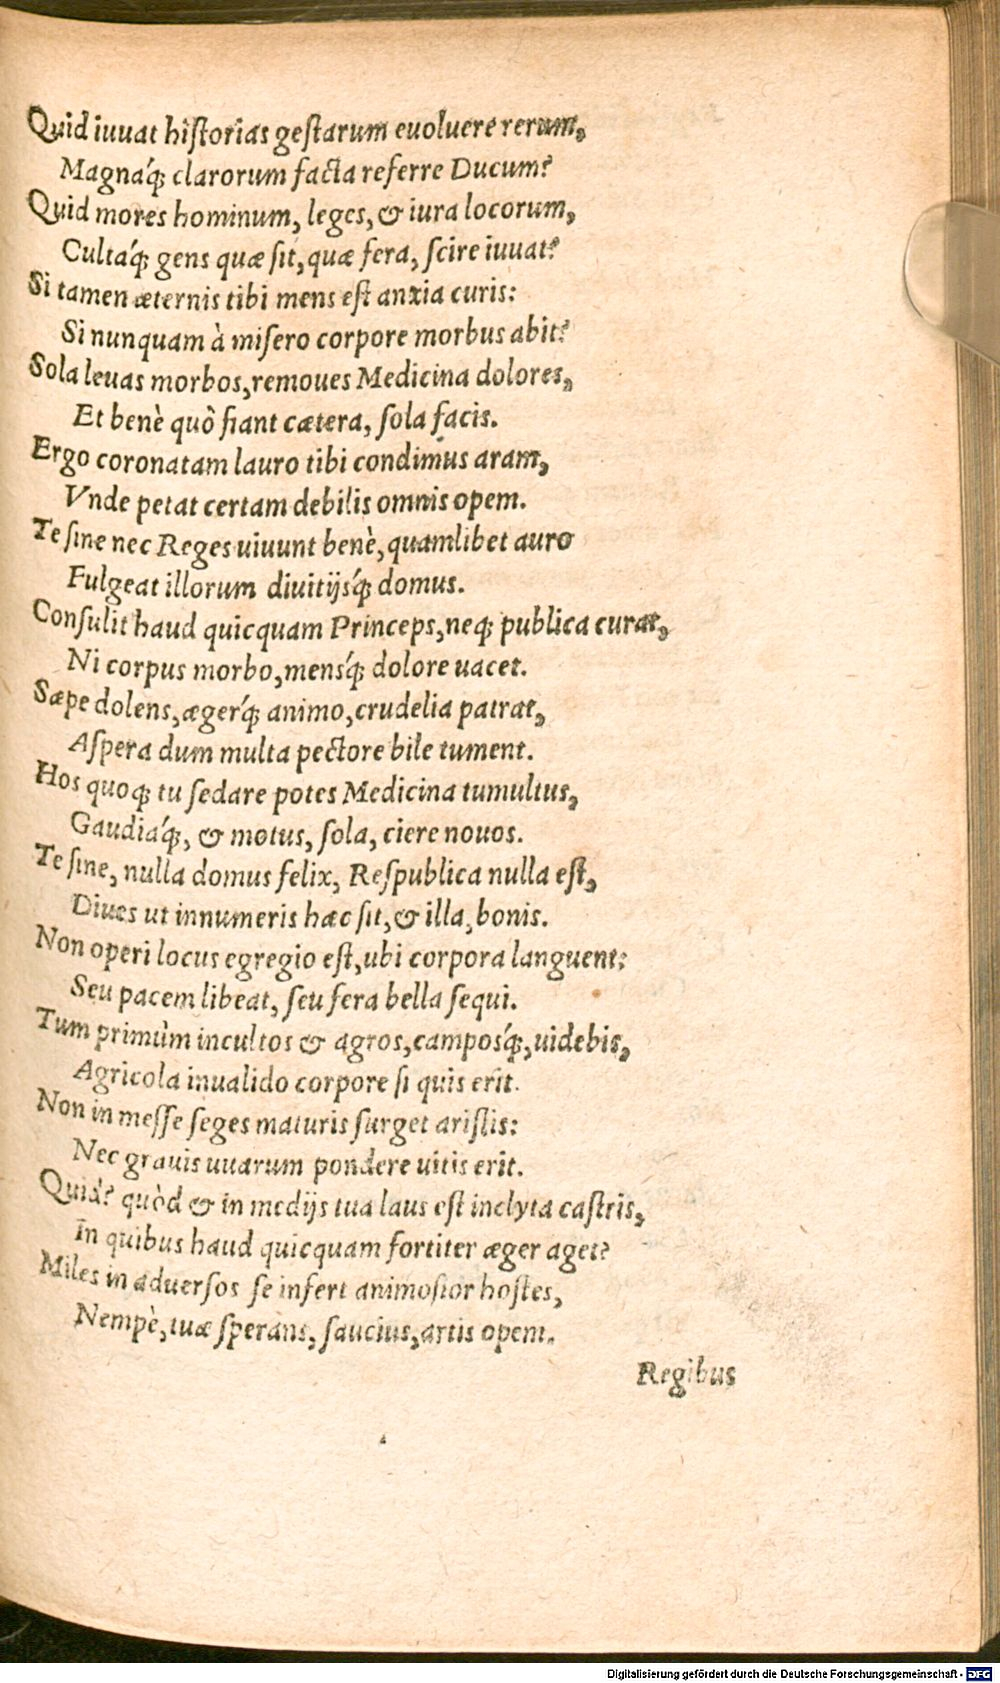 Quid iuuat hiſtorias geſtarum euoluere rerum,
Magnáq́; clarorum facta referre Ducum?
Quid mores hominum, leges, & iura locorum,
Cultáq́; gens quæ ſit, quæ fera, ſcire iuuat?
Si tamen æternis tibi mens eſt anxia curis:
Si nunquam à miſero corpore morbus abit?
Sola leuas morbos, remoues Medicina dolores,
Et benè quò fiant cætera, ſola facis.
Ergo coronatam lauro tibi condimus aram,
Vnde petat certam debilis omnis opem.
Te ſine nec Reges uiuunt benè, quamlibet auro
Fulgeat illorum diuitijsq́; domus.
Conſulit haud quicquam Princeps, neq; publica curat,
Ni corpus morbo, mensq́; dolore uacet.
Sæpe dolens, ægerq́; animo, crudelia patrat,
Aſpera dum multa pectore bile tument.
Hos quoq; tu ſedare potes Medicina tumultus,
Gaudiáq́;, & motus, ſola, ciere nouos.
Te ſine, nulla domus felix, Reſpublica nulla eſt,
Diues ut innumeris hæc ſit, & illa, bonis.
Non operi locus egregio eſt, ubi corpora languent:
Seu pacem libeat, ſeu fera bella ſequi.
Tum primùm incultos & agros, camposq́;, uidebis,
Agricola inualido corpore ſi quis erit.
Non in meſſe ſeges maturis ſurget ariſtis:
Nec grauis uuarum pondere uitis erit.
Quid? quòd & in medijs tua laus eſt inclyta caſtris,
In quibus haud quicquam fortiter æger aget?
Miles in aduerſos ſe infert animoſior hoſtes,
Nempè, tuæ ſperans, ſaucius, artis opem.
Regibus
Digitalisierung gefördert durch die Deutsche Forschungsgemeinschaft - DFG